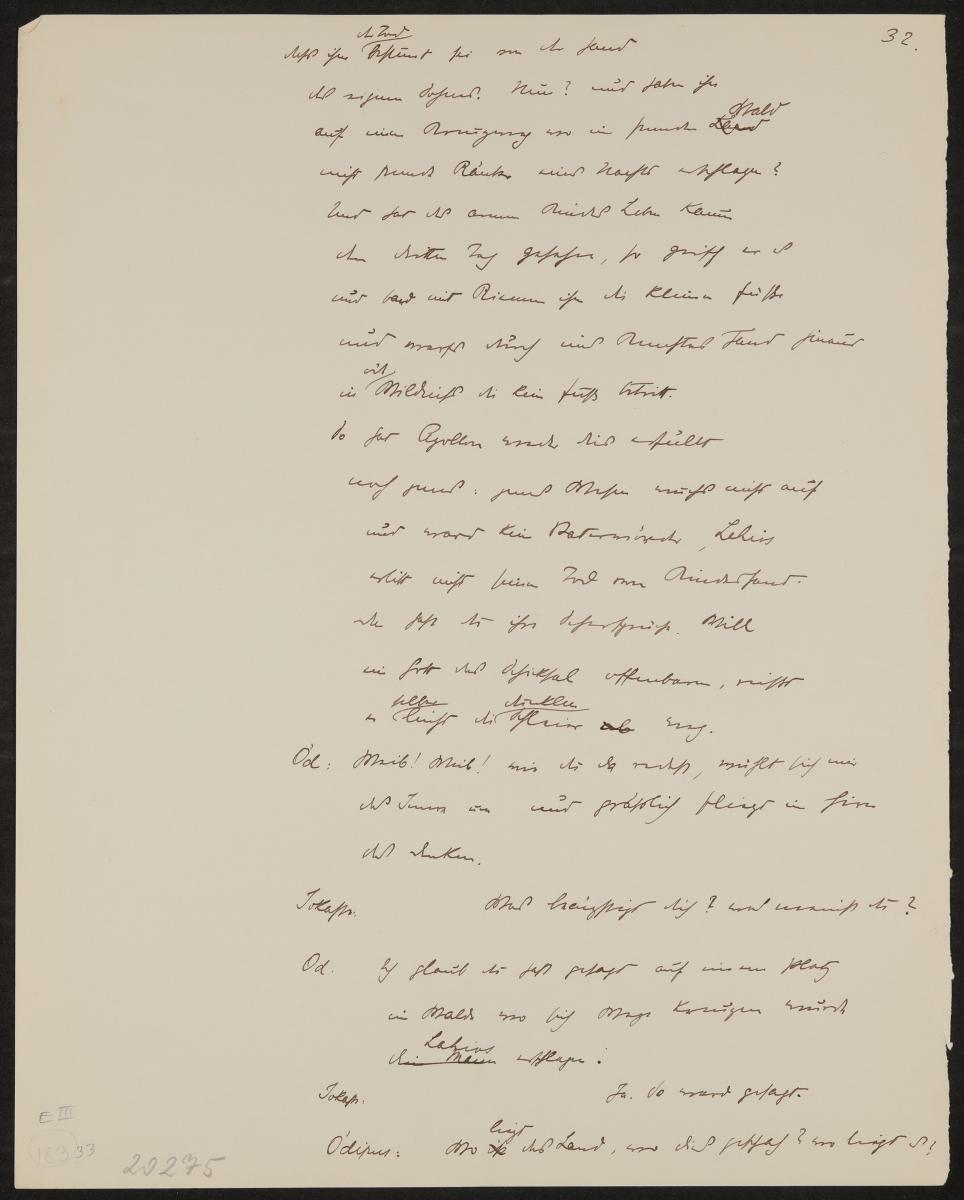 32.
der Tod
daß ihm bestimmt sei von der Hand
des eignen Sohnes. Nun? und haben ihn
Wald
auf einer Kreuzung wo im fremden Land
nicht fremde Räuber eines Nachts erschlagen?
Und hat des armen Kindes Leben kaum
den dritten Tag gesehen, so griff er es
und band mit Riemen ihm die kleinen Füße
und warfs durch eines Knechtes Hand hinaus
in Wildniß die kein Fuß betritt.
So hat Apollon weder dies erfüllt
noch jenes: jenes Wesen wuchs nicht auf
und ward kein Vatermörder, Laïos
erlitt nicht seinen Tod von Kindeshand.
da hast du ihre Sehersprüche. Will
ein Gott das Schicksal offenbaren, nicht
selber dunklen
er die Schleier ab weg.
Öd: Weib! Weib! wie du da redest, wühlt sich mir
das Innere um und gräßlich springt im Hirn
das Denken.
Jokaste. Was beängstigt dich? was meinst du?
Öd. Ich glaub du hast gesagt auf einem Platz
im Walde wo sich Wege kreuzen wurde
Laïos
dein Mann erschlagen.
Jokast. Ja. So ward gesagt.
liegt
Ödipus: Wo ist das Land, wo dies geschah? wo liegt es?
E III
183 33
20275